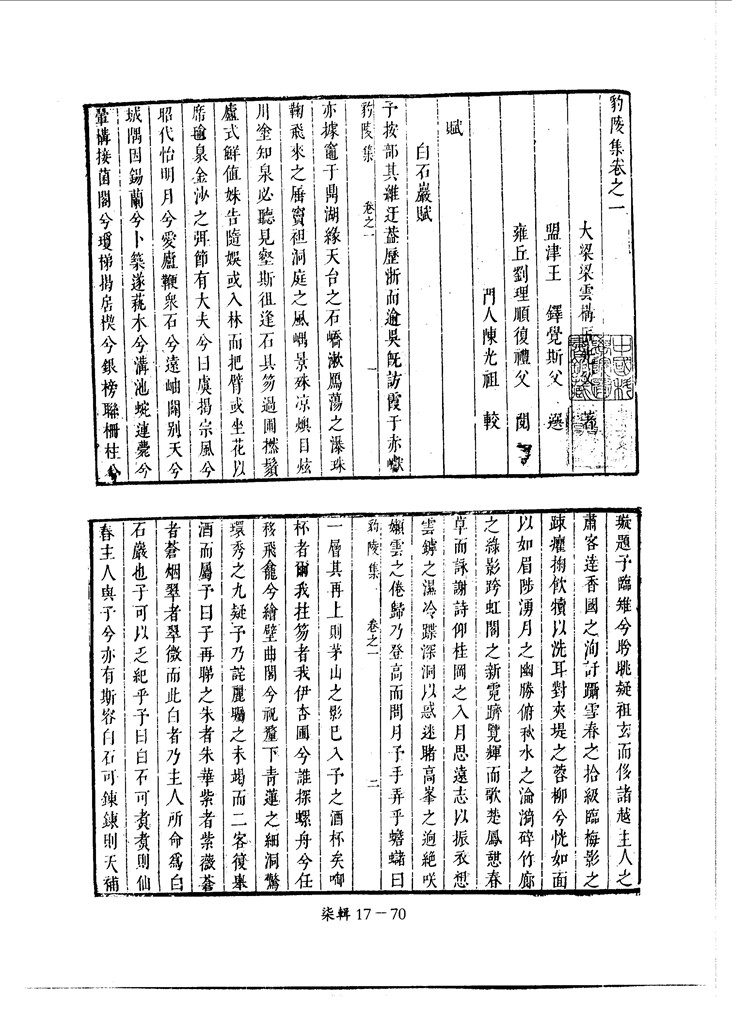 豹陵集卷之一
大梁梁雲構
著
盟津王　鐸覺斯父　選
雍丘劉理順復禮父　閱
門人陳光祖　較
賦
白石巖賦
予按部其維迂蓋歷浙而逾吳旣訪霞于赤巘
豹陵集　卷之一　一
亦據竈于鼎湖緣天台之石嶠漱鴈蕩之瀑珠
鞠飛來之厝竇徂洞庭之風嵎景殊凉燠目炫
川塗知泉必聽見壑斯徂逢石具笏過圃撚鬚
廬式鮮值姝告隨娛或入林而把臂或坐花以
席逾泉金沙之弭節有大夫兮曰虞揭宗風兮
昭代怡明月兮愛廬鞭衆石兮遠岫闢别天兮
城隅因錫蘭兮卜築遂蓺木兮溝池蜿蓮甍兮
暈構接菌閣兮瓊梯揭房楔兮銀榜聯柵柱兮
璇題予臨雉兮聆眺疑祖玄而侈諸越主人之
肅客逹香國之洵訏躡雪春之拾級臨梅影之
踈癯掬飲犢以洗耳對夾堤之蓉柳兮恍如面
以如眉陟湧月之幽勝俯秋水之淪漪碎竹廊
之綠影跨虹閣之新霓躋覽輝而歌楚鳳憩春
草而詠謝詩仰桂岡之入月思遠志以振衣想
雲鐏之濕冷蹀深洞以惑迷賭高峯之逈絶咲
嬾雲之倦歸乃登高而問月予手弄乎蟾蜍曰
豹陵集　卷之一　二
一層其再上則茅山之影已入予之酒杯矣啣
杯者爾我拄笏者我伊杏圃兮誰探螺舟兮任
移飛龕兮繪壁曲閣兮視鼇下青蓮之細洞驚
環秀之九疑予乃詫麗矚之未竭而二客復舉
酒而屬予曰子再睇之朱者朱華紫者紫薇蒼
者蒼烟翠者翠微而此白者乃主人所命爲白
石巖也子可以乏紀乎予曰白石可煑煑則仙
春主人與予兮亦有斯容白石可鍊鍊則天補
柒輯 17－70